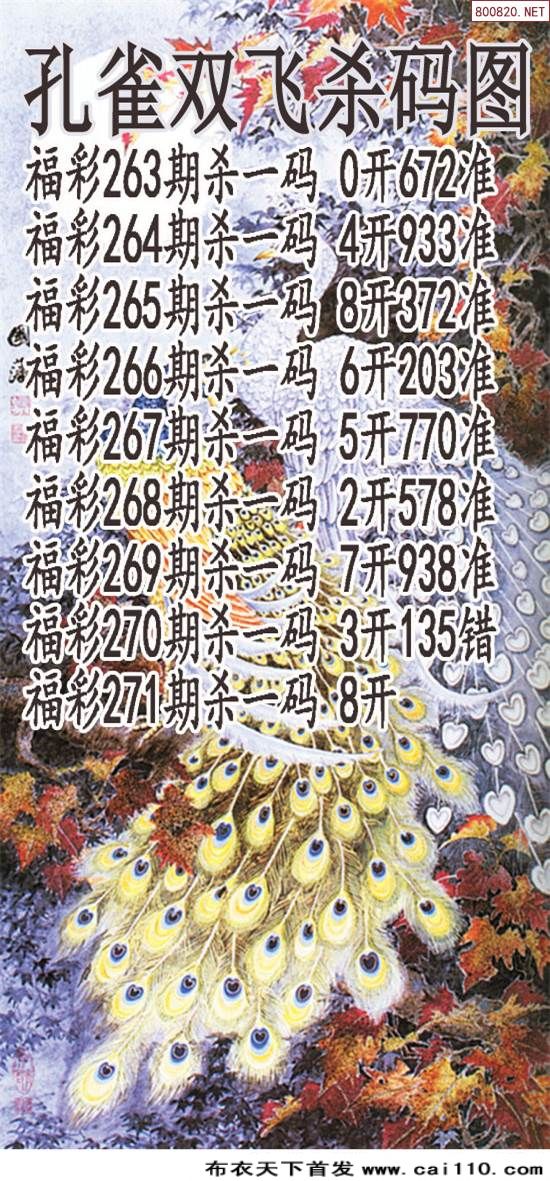 800820.NET
孔雀双飞杀码图
福彩263期杀一码 0开672准
福彩264期杀一码 4开933准
福彩265期杀一码 8开372准
福彩266期杀一码 6开203准
福彩267期杀一码 5开770准
福彩268期杀一码 2开578准
福彩269期杀一码 7开938准
福彩270期杀一码 3开135错
福彩271期杀一码 8开
布衣天下首发 www.cai110.com